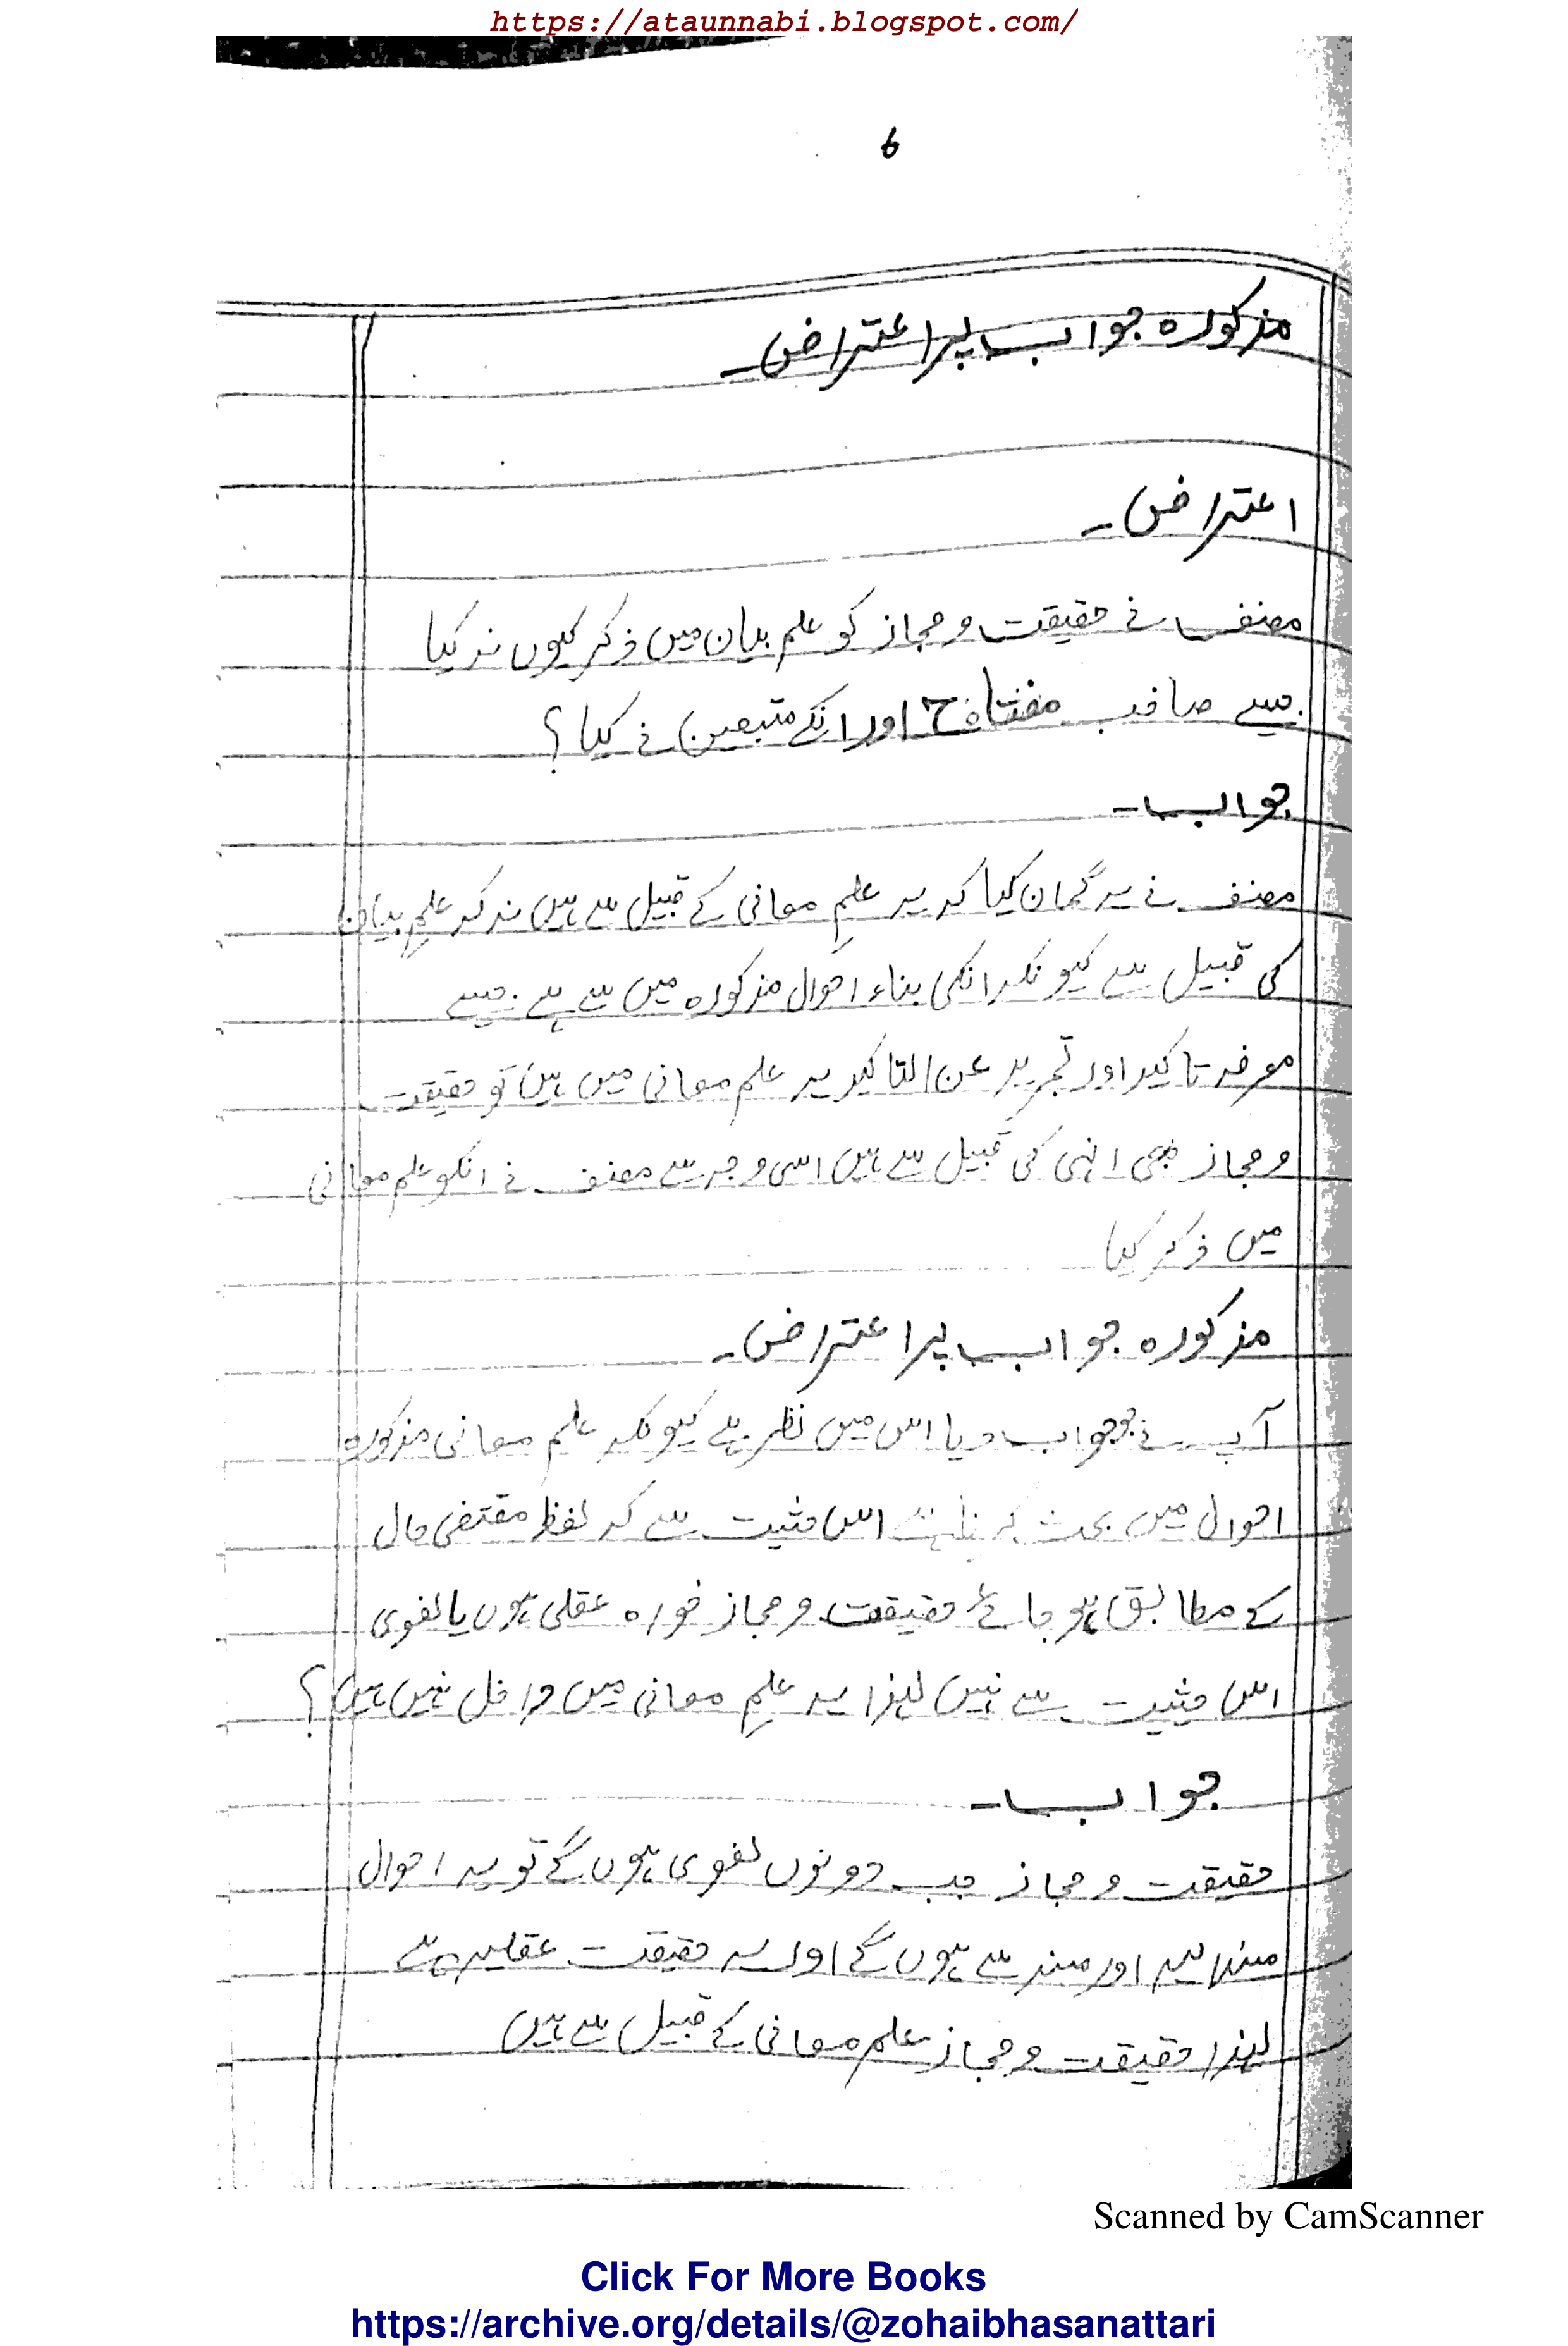 https://ataunnabi.blogspot.com/
6
مذکورہ جواب پر اعتراض۔
اعتراض۔
مصنف نے حقیقت و مجاز کو علم بیان میں ذکر کیوں نہ کیا
جیسے صاحب مفتاح اور انکے متبعین نے کیا؟
جواب۔
مصنف نے یہ گمان کیا کہ یہ علمِ معانی کے قبیل سے ہیں نہ کہ علمِ بیان
کی قبیل سے کیونکہ انکی بناء احوال مذکورہ میں سے ہے جیسے
معرفہ تاکید اور تجرید عن التاکید یہ علم معانی میں ہیں تو حقیقت
و مجاز بھی انہی کی قبیل سے ہیں اسی وجہ سے مصنف نے انکو علم معانی
میں ذکر کیا
مذکورہ جواب پر اعتراض۔
آپ نے جو جواب دیا اس میں نظر ہے کیونکہ علم معانی مذکورہ
احوال میں بحث کرتا ہے اس حثیت سے کہ لفظ مقتضی حال
کے مطابق ہو جائے حقیقت و مجاز خواہ عقلی ہوں یا لغوی
اس حثیت سے نہیں لہذا یہ علمِ معانی میں داخل نہیں ہیں؟
جواب۔
حقیقت و مجاز جب دونوں لغوی ہوں گے تو یہ احوال
مسند الیہ اور مسند سے ہوں گے اور یہ حقیقت عقلیہ ہے
لہذا حقیقت و مجاز علم معانی کے قبیل سے ہیں
Scanned by CamScanner
Click For More Books
https://archive.org/details/@zohaibhasanattari